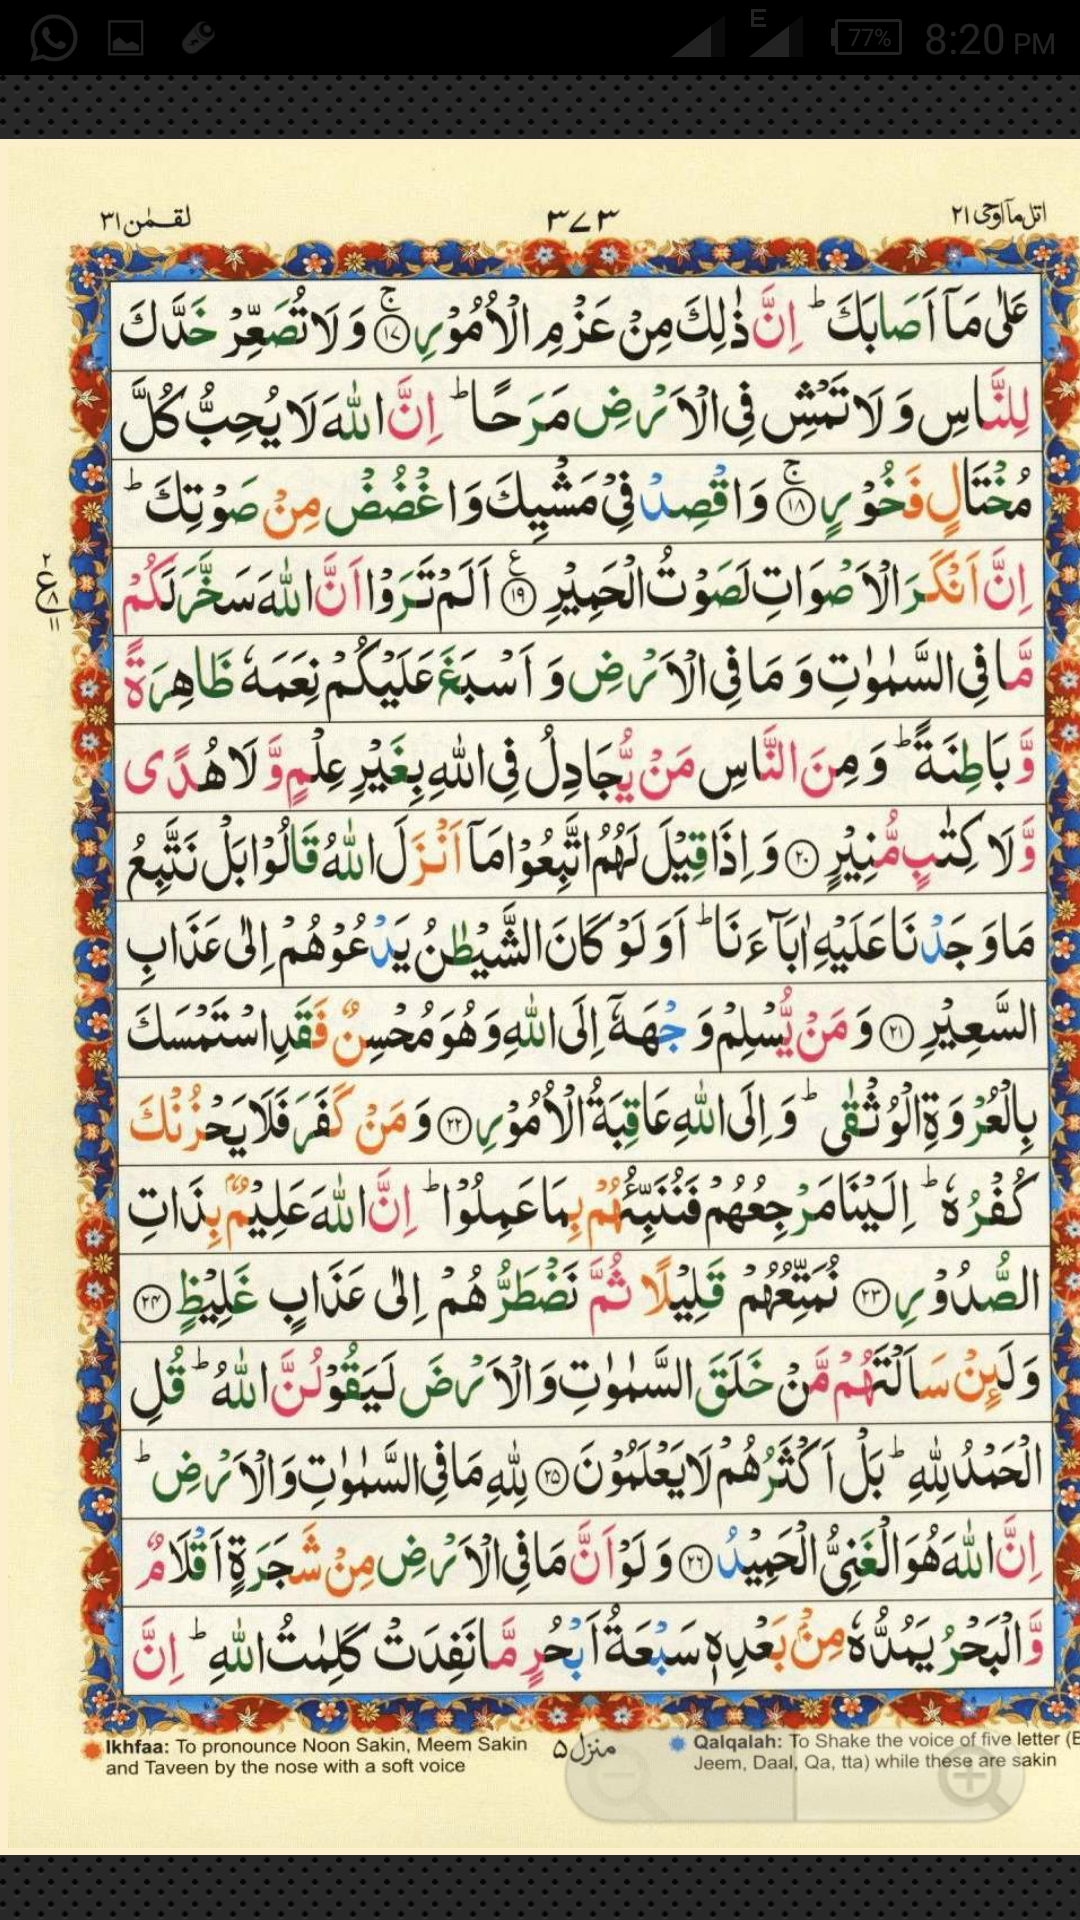 77% E 8:20 PM
اتل مآ اوحی ۲۱ ۳۷۳ لقمٰن ۳۱
عَلٰى مَاۤ اَصَابَكَ ؕ اِنَّ ذٰلِكَ مِنْ عَزْمِ الْاُمُوْرِ ۚ‏﴿۱۷﴾ وَلَا تُصَعِّرْ خَدَّكَ
لِلنَّاسِ وَلَا تَمْشِ فِى الْاَرْضِ مَرَحًا ؕ اِنَّ اللّٰهَ لَا يُحِبُّ كُلَّ
مُخْتَالٍ فَخُوْرٍ ۚ‏﴿۱۸﴾ وَاقْصِدْ فِىْ مَشْيِكَ وَاغْضُضْ مِنْ صَوْتِكَ ؕ
اِنَّ اَنْكَرَ الْاَصْوَاتِ لَصَوْتُ الْحَمِيْرِ ﴿۱۹﴾ ع اَلَمْ تَرَوْا اَنَّ اللّٰهَ سَخَّرَ لَكُمْ
۲ ع ۸ ۱۱
مَّا فِى السَّمٰوٰتِ وَمَا فِى الْاَرْضِ وَاَسْبَغَ عَلَيْكُمْ نِعَمَهٗ ظَاهِرَةً
وَّبَاطِنَةً ؕ وَمِنَ النَّاسِ مَنْ يُّجَادِلُ فِى اللّٰهِ بِغَيْرِ عِلْمٍ وَّلَا هُدًى
وَّلَا كِتٰبٍ مُّنِيْرٍ ﴿۲۰﴾ وَاِذَا قِيْلَ لَهُمُ اتَّبِعُوْا مَاۤ اَنْزَلَ اللّٰهُ قَالُوْا بَلْ نَتَّبِعُ
مَا وَجَدْنَا عَلَيْهِ اٰبَآءَنَا ؕ اَوَلَوْ كَانَ الشَّيْطٰنُ يَدْعُوْهُمْ اِلٰى عَذَابِ
السَّعِيْرِ ﴿۲۱﴾ وَمَنْ يُّسْلِمْ وَجْهَهٗۤ اِلَى اللّٰهِ وَهُوَ مُحْسِنٌ فَقَدِ اسْتَمْسَكَ
بِالْعُرْوَةِ الْوُثْقٰى ؕ وَاِلَى اللّٰهِ عَاقِبَةُ الْاُمُوْرِ ﴿۲۲﴾ وَمَنْ كَفَرَ فَلَا يَحْزُنْكَ
كُفْرُهٗ ؕ اِلَيْنَا مَرْجِعُهُمْ فَنُنَبِّئُهُمْ بِمَا عَمِلُوْا ؕ اِنَّ اللّٰهَ عَلِيْمٌۢ بِذَاتِ
الصُّدُوْرِ ﴿۲۳﴾ نُمَتِّعُهُمْ قَلِيْلًا ثُمَّ نَضْطَرُّهُمْ اِلٰى عَذَابٍ غَلِيْظٍ ﴿۲۴﴾
وَلَئِنْ سَاَلْتَهُمْ مَّنْ خَلَقَ السَّمٰوٰتِ وَالْاَرْضَ لَيَقُوْلُنَّ اللّٰهُ ؕ قُلِ
الْحَمْدُ لِلّٰهِ ؕ بَلْ اَكْثَرُهُمْ لَا يَعْلَمُوْنَ ﴿۲۵﴾ لِلّٰهِ مَا فِى السَّمٰوٰتِ وَالْاَرْضِ ؕ
اِنَّ اللّٰهَ هُوَ الْغَنِىُّ الْحَمِيْدُ ﴿۲۶﴾ وَلَوْ اَنَّ مَا فِى الْاَرْضِ مِنْ شَجَرَةٍ اَقْلَامٌ
وَّالْبَحْرُ يَمُدُّهٗ مِنْۢ بَعْدِهٖ سَبْعَةُ اَبْحُرٍ مَّا نَفِدَتْ كَلِمٰتُ اللّٰهِ ؕ اِنَّ
Ikhfaa: To pronounce Noon Sakin, Meem Sakin
and Taveen by the nose with a soft voice
منزل ۵
Qalqalah: To Shake the voice of five letter (
Jeem, Daal, Qa, tta) while these are sakin